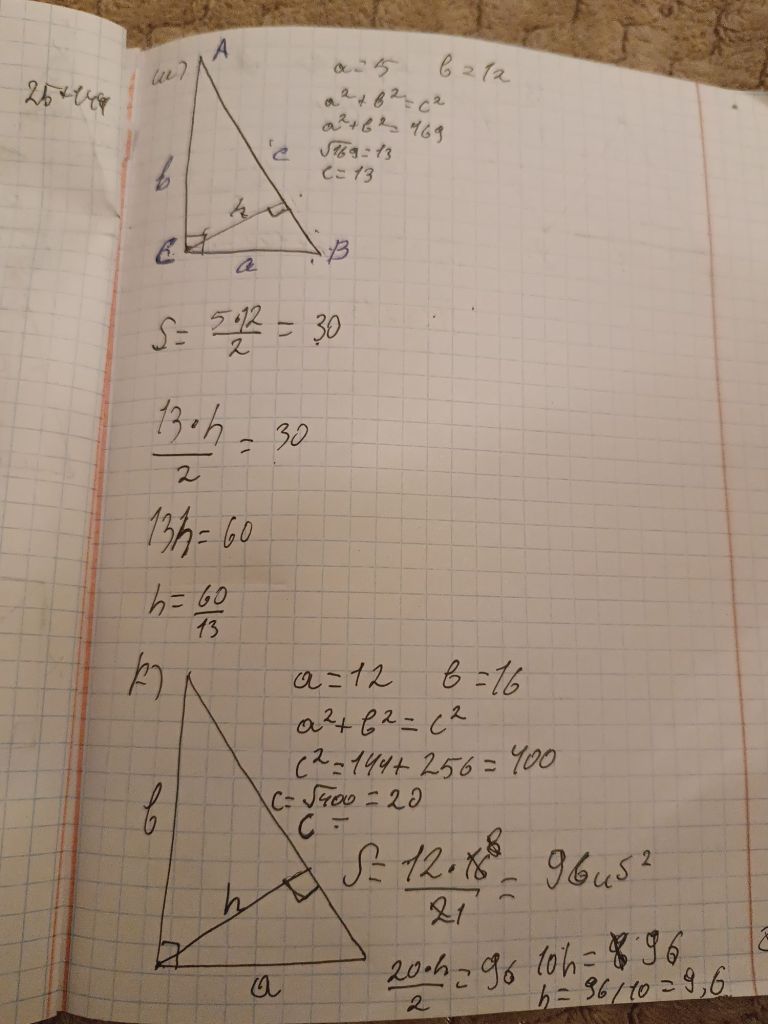 25+144
а) A
a = 5 b = 12
a² + b² = c²
a² + b² = 169
√169 = 13
c = 13
b h c
C a B
S = 5·12/2 = 30
13·h/2 = 30
13h = 60
h = 60/13
a = 12 b = 16
a² + b² = c²
c² = 144 + 256 = 400
c = √400 = 20
c =
b h a
S = 12·16 8/2 1 = 96 ²
20·h/2 = 96 10h = 96
h = 96/10 = 9,6